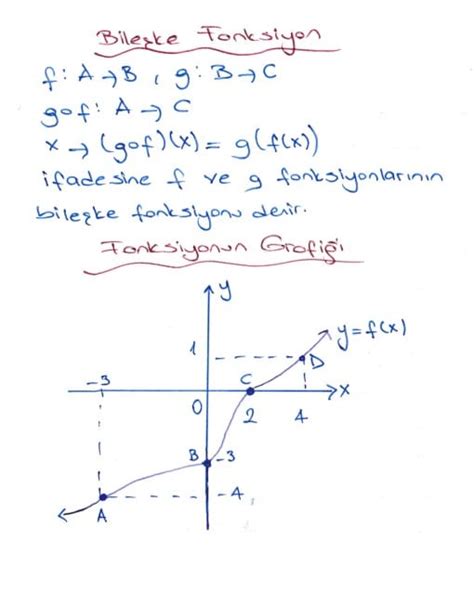 Bileşke Fonksiyon
f: A→B, g: B→C
gof: A→C
x→(gof)(x)= g(f(x))
ifadesine f ve g fonksiyonlarının
bileşke fonksiyonu denir.
Fonksiyonun Grafiği
y
y=f(x)
1
D
-3
C
x
0
2
4
B
-3
-4
A